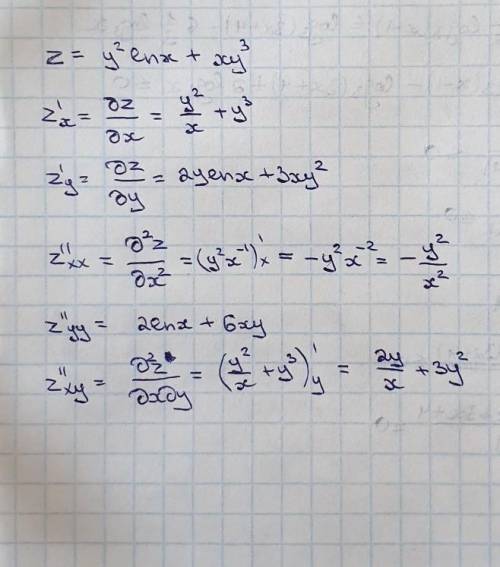 z = y² ln x + xy³
z'x = ∂z/∂x = y²/x + y³
z'y = ∂z/∂y = 2y ln x + 3xy²
z''xx = ∂²z/∂x² = (y²x⁻¹)'x = -y²x⁻² = - y²/x²
z''yy = 2 ln x + 6xy
z''xy = ∂²z/∂x∂y = (y²/x + y³)'y = 2y/x + 3y²